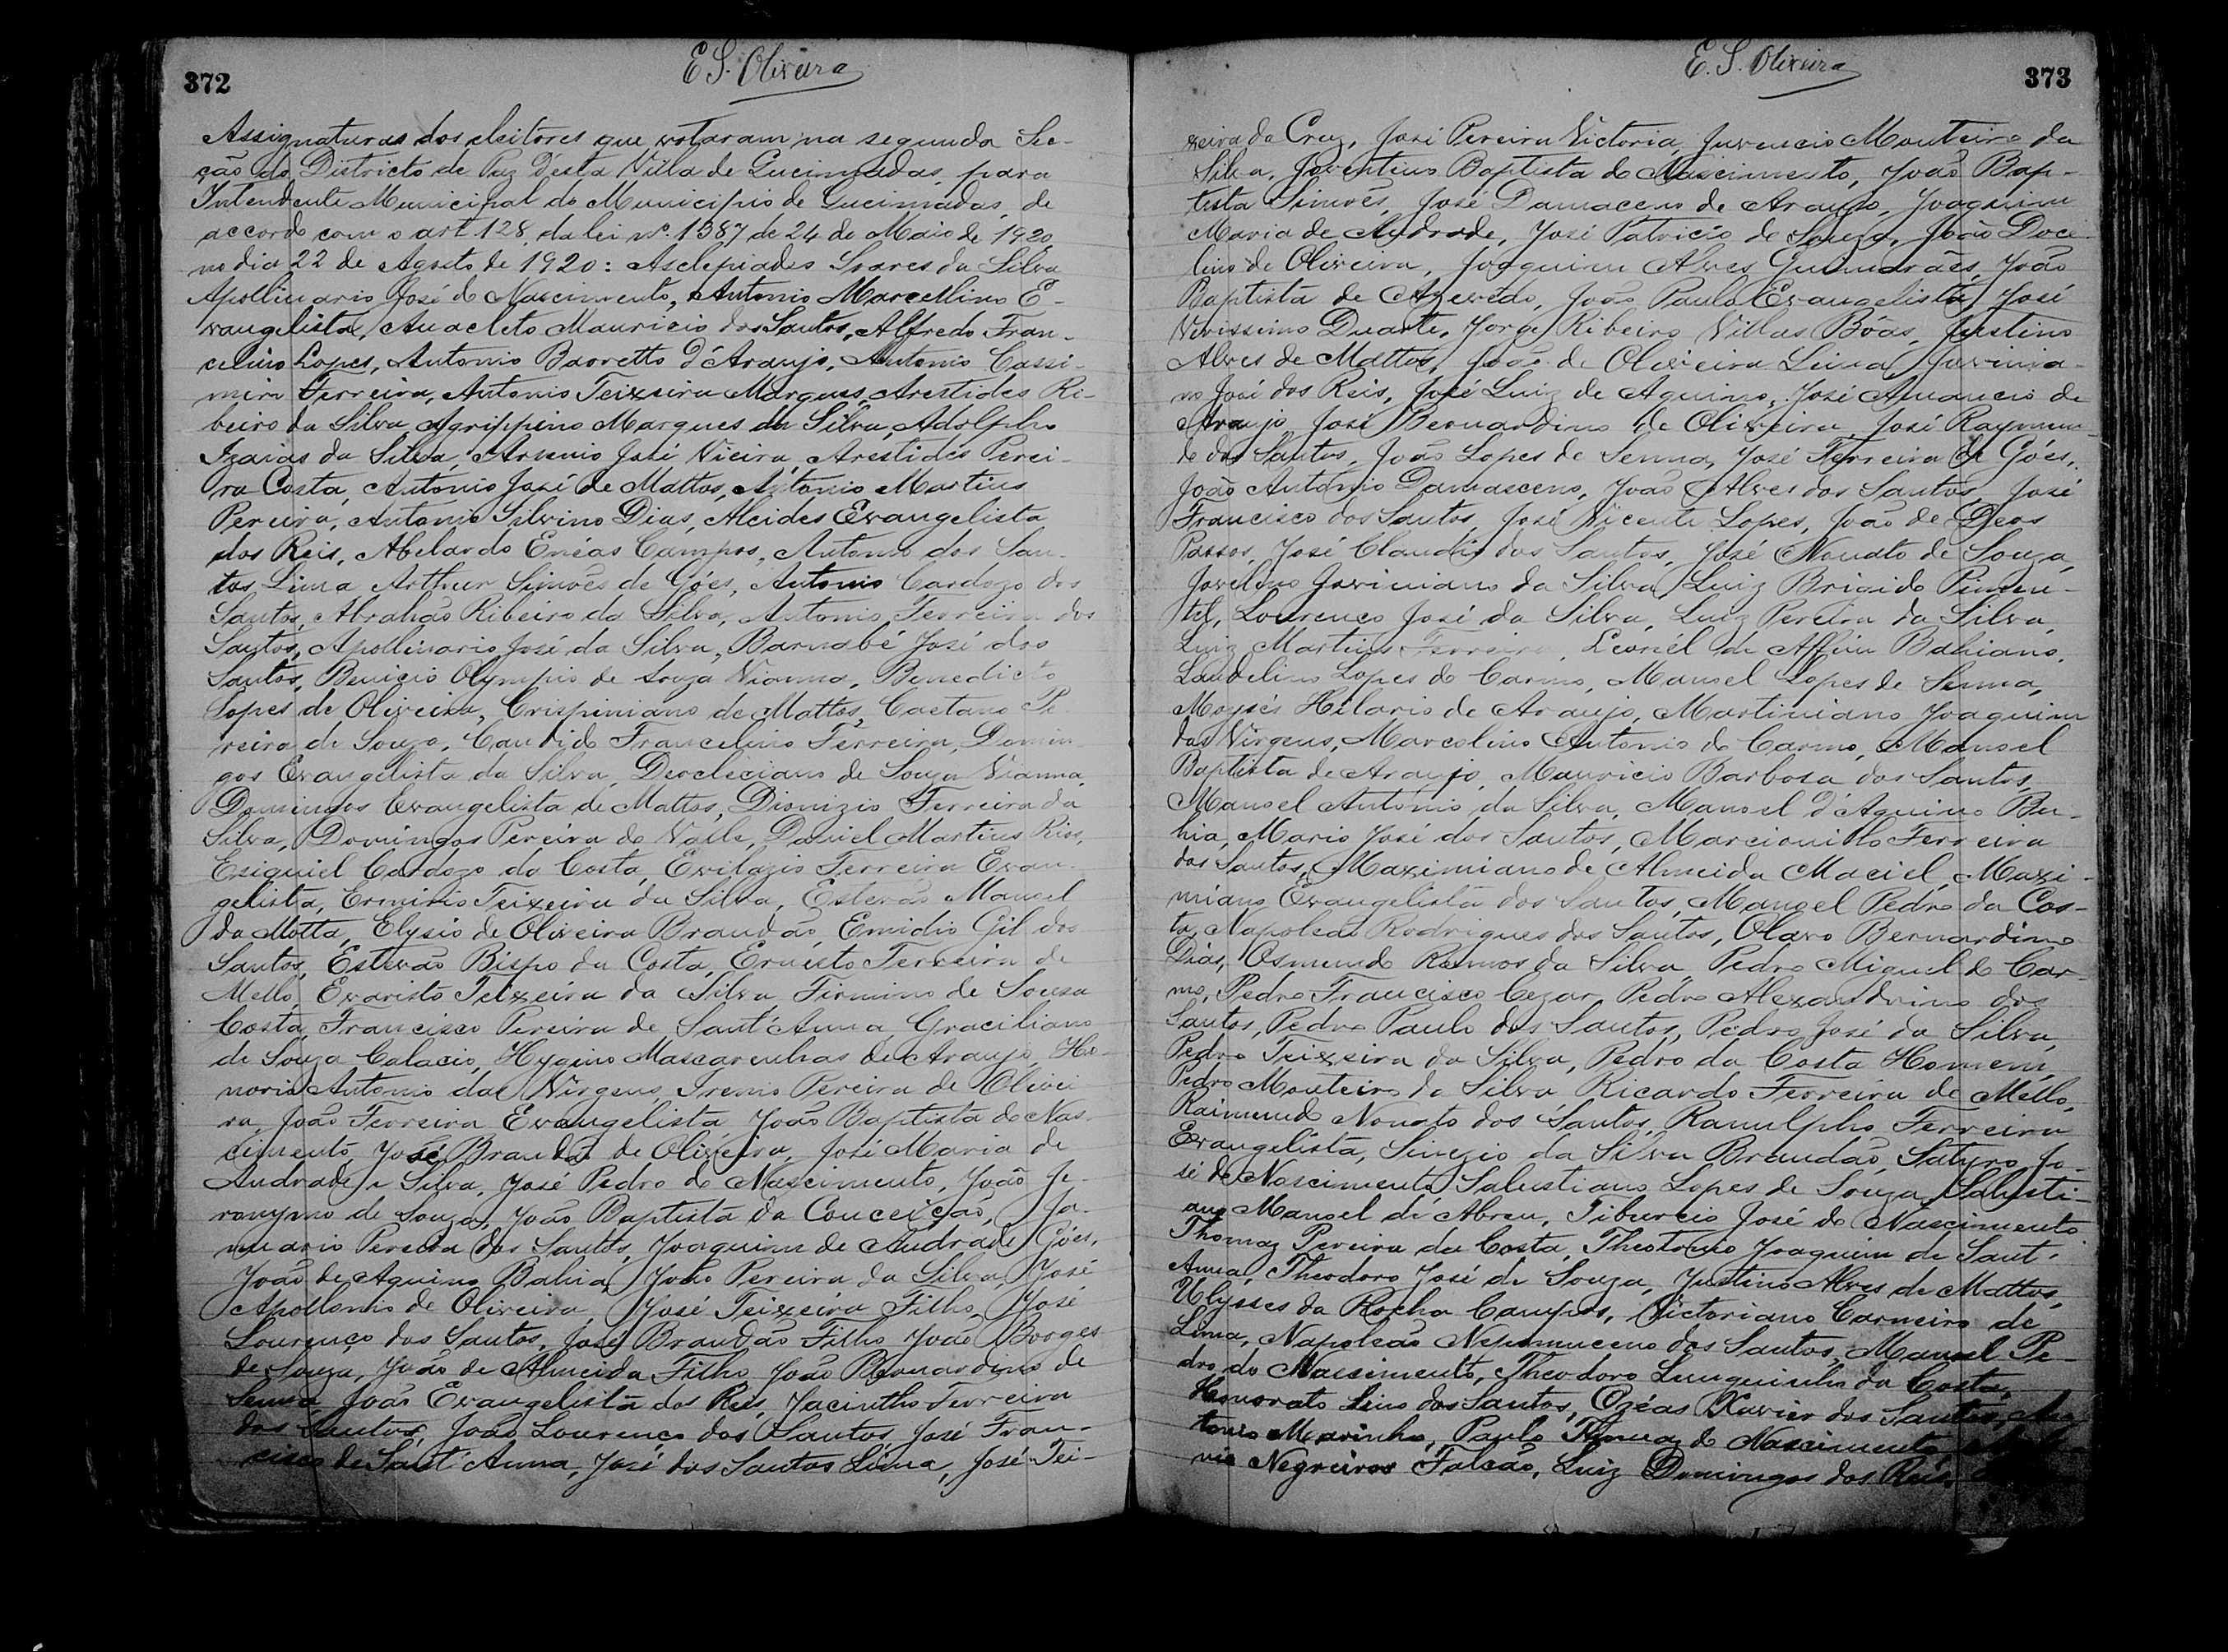 372
E. S. Oliveira
Assignaturas dos eleitores que votaram na segunda Sec-
ção do Districto de Paz D'esta Villa de Queimadas, para
Intendente Municipal do Municipio de Queimadas, de
accordo com o art 128, da lei nº. 1387 de 24 de Maio de 1920,
no dia 22 de Agosto de 1920: Asclepiades Soares da Silva
Apollinario José do Nascimento, Antonio Marcellino E-
vangelista, Anacleto Mauricio dos Santos, Alfredo Fran-
celino Lopes, Antonio Barretto d'Araujo, Antonio Cassi-
miro Ferreira, Antonio Teixeira Marques, Arestides Ri-
beiro da Silva, Agrippino Marques da Silva, Adolpho
Izaias da Silva, Arsenio José Vieira, Arestides Perei-
ra Costa, Antonio José de Mattos, Antonio Martins
Pereira, Antonio Silvino Dias, Alcides Evangelista
dos Reis, Abelardo Enéas Campos, Antonio dos San-
tos Lima, Arthur Simões de Góes, Antonio Cardozo dos
Santos, Abrahão Ribeiro da Silva, Antonio Ferreira dos
Santos, Apollinario José da Silva, Barnabé José dos
Santos, Benicio Olympio de Souza Vianna, Benedicto
Lopes de Oliveira, Crispiniano de Mattos, Caetano Pe-
reira de Souza, Candido Francelino Ferreira, Domin
gos Evangelista da Silva, Deocleciano de Souza Vianna,
Domingos Evangelista de Mattos, Dionizio Ferreira da
Silva, Domingos Pereira do Valle, Daniel Martins Rios,
Esiquiel Cardozo da Costa, Evilazio Ferreira Evan-
gelista, Erminio Teixeira da Silva, Estevão Manoel
da Motta, Elysio de Oliveira Brandão, Emidio Gil dos
Santos, Estevão Bispo da Costa, Ernesto Ferreira de
Mello, Evaristo Teixeira da Silva, Firmino de Sousa
Costa, Francisco Pereira de Sant'Anna, Graciliano
de Souza Calacio, Hygino Mascarenhas de Araujo, Ho-
norio Antonio das Virgens, Irenio Pereira de Olivei
ra, João Ferreira Evangelista, João Baptista do Nas-
cimento, José Brandão de Oliveira, José Maria de
Andrade e Silva, José Pedro do Nascimento, João Je-
ronymo de Souza, João Baptista da Conceição, Ja-
nuario Pereira dos Santos, Joaquim de Andrade Góes,
João de Aquino Bahia, João Pereira da Silva, José
Apollonio de Oliveira, José Teixeira Filho, José
Lourenço dos Santos, José Brandão Filho, João Borges
de Souza, João de Almeida Filho, João Bernardino de
Senna, João Evangelista dos Reis, Jacintho Ferreira
dos Santos, João Lourenço dos Santos, José Fran-
cisco de Sant'Anna, José dos Santos Lima, José Tei-
E. S. Oliveira
373
xeira da Cruz, José Pereira Victoria, Juvencio Monteiro da
Silva, Joventino Baptista do Nascimento, João Bap-
tista Simões, José Damaceno de Araujo, Joaquim
Maria de Andrade, José Patricio de Souza, João Doce
lino de Oliveira, Joaquim Alves Guimarães, João
Baptista de Azevêdo, João Paulo Evangelista, José
Virissimo Duarte, Jorge Ribeiro Villas Bôas, Justino
Alves de Mattos, João de Oliveira Lima, Juvinia-
no José dos Reis, José Luiz de Aquino, José Amancio de
Araujo, José Bernardino de Oliveira, José Raymun-
do dos Santos, João Lopes de Senna, José Ferreira de Góes,
João Antonio Damasceno, João Alves dos Santos, José
Francisco dos Santos, José Vicente Lopes, João de Deos
Passos, José Claudio dos Santos, José Nonato de Souza,
Jovelino Joviniano da Silva, Luiz Brigido Pimen-
tel, Lourenço José da Silva, Luiz Pereira da Silva,
Luiz Martins Ferreira, Leoniel de Affim Bahiano,
Laudelino Lopes do Carmo, Manoel Lopes de Senna,
Moysés Hilario de Araujo, Martiniano Joaquim
das Virgens, Marcolino Antonio do Carmo, Manoel
Baptista de Araujo, Mauricio Barbosa dos Santos,
Manoel Antonio da Silva, Manoel d'Aquino Ba-
hia, Mario José dos Santos, Marcionillo Ferreira
dos Santos, Maximiano de Almeida Maciel, Maxi-
miano Evangelista dos Santos, Manoel Pedro da Cos-
ta, Napoleão Rodrigues dos Santos, Olavo Bernardino
Dias, Osmundo Ramos da Silva, Pedro Miguel do Car-
mo, Pedro Francisco Cezar, Pedro Alexandrino dos
Santos, Pedro Paulo dos Santos, Pedro José da Silva,
Pedro Teixeira da Silva, Pedro da Costa Homem,
Pedro Monteiro da Silva, Ricardo Ferreira de Mello,
Raimundo Nonato dos Santos, Ranulpho Ferreira
Evangelista, Sinezio da Silva Brandão, Satyro Jo-
sé do Nascimento, Salustiano Lopes de Souza, Salusti-
ano Manoel de Abreu, Tiburcio José do Nascimento
Thomaz Pereira da Costa, Theotonio Joaquim de Sant'
Anna, Theodoro José de Souza, Justino Alves de Mattos,
Ulysses da Rocha Campos, Victoriano Carneiro de
Lima, Napoleão Nepomuceno dos Santos, Manoel Pe-
dro do Nascimento, Theodoro Lunguinho da Costa,
Honorato Lino dos Santos, Ozéas Xavier dos Santos, An
tonio Marinho, Paulo Thomaz do Nascimento
nio Negreiros Falcão, Luiz Domingos dos Reis.